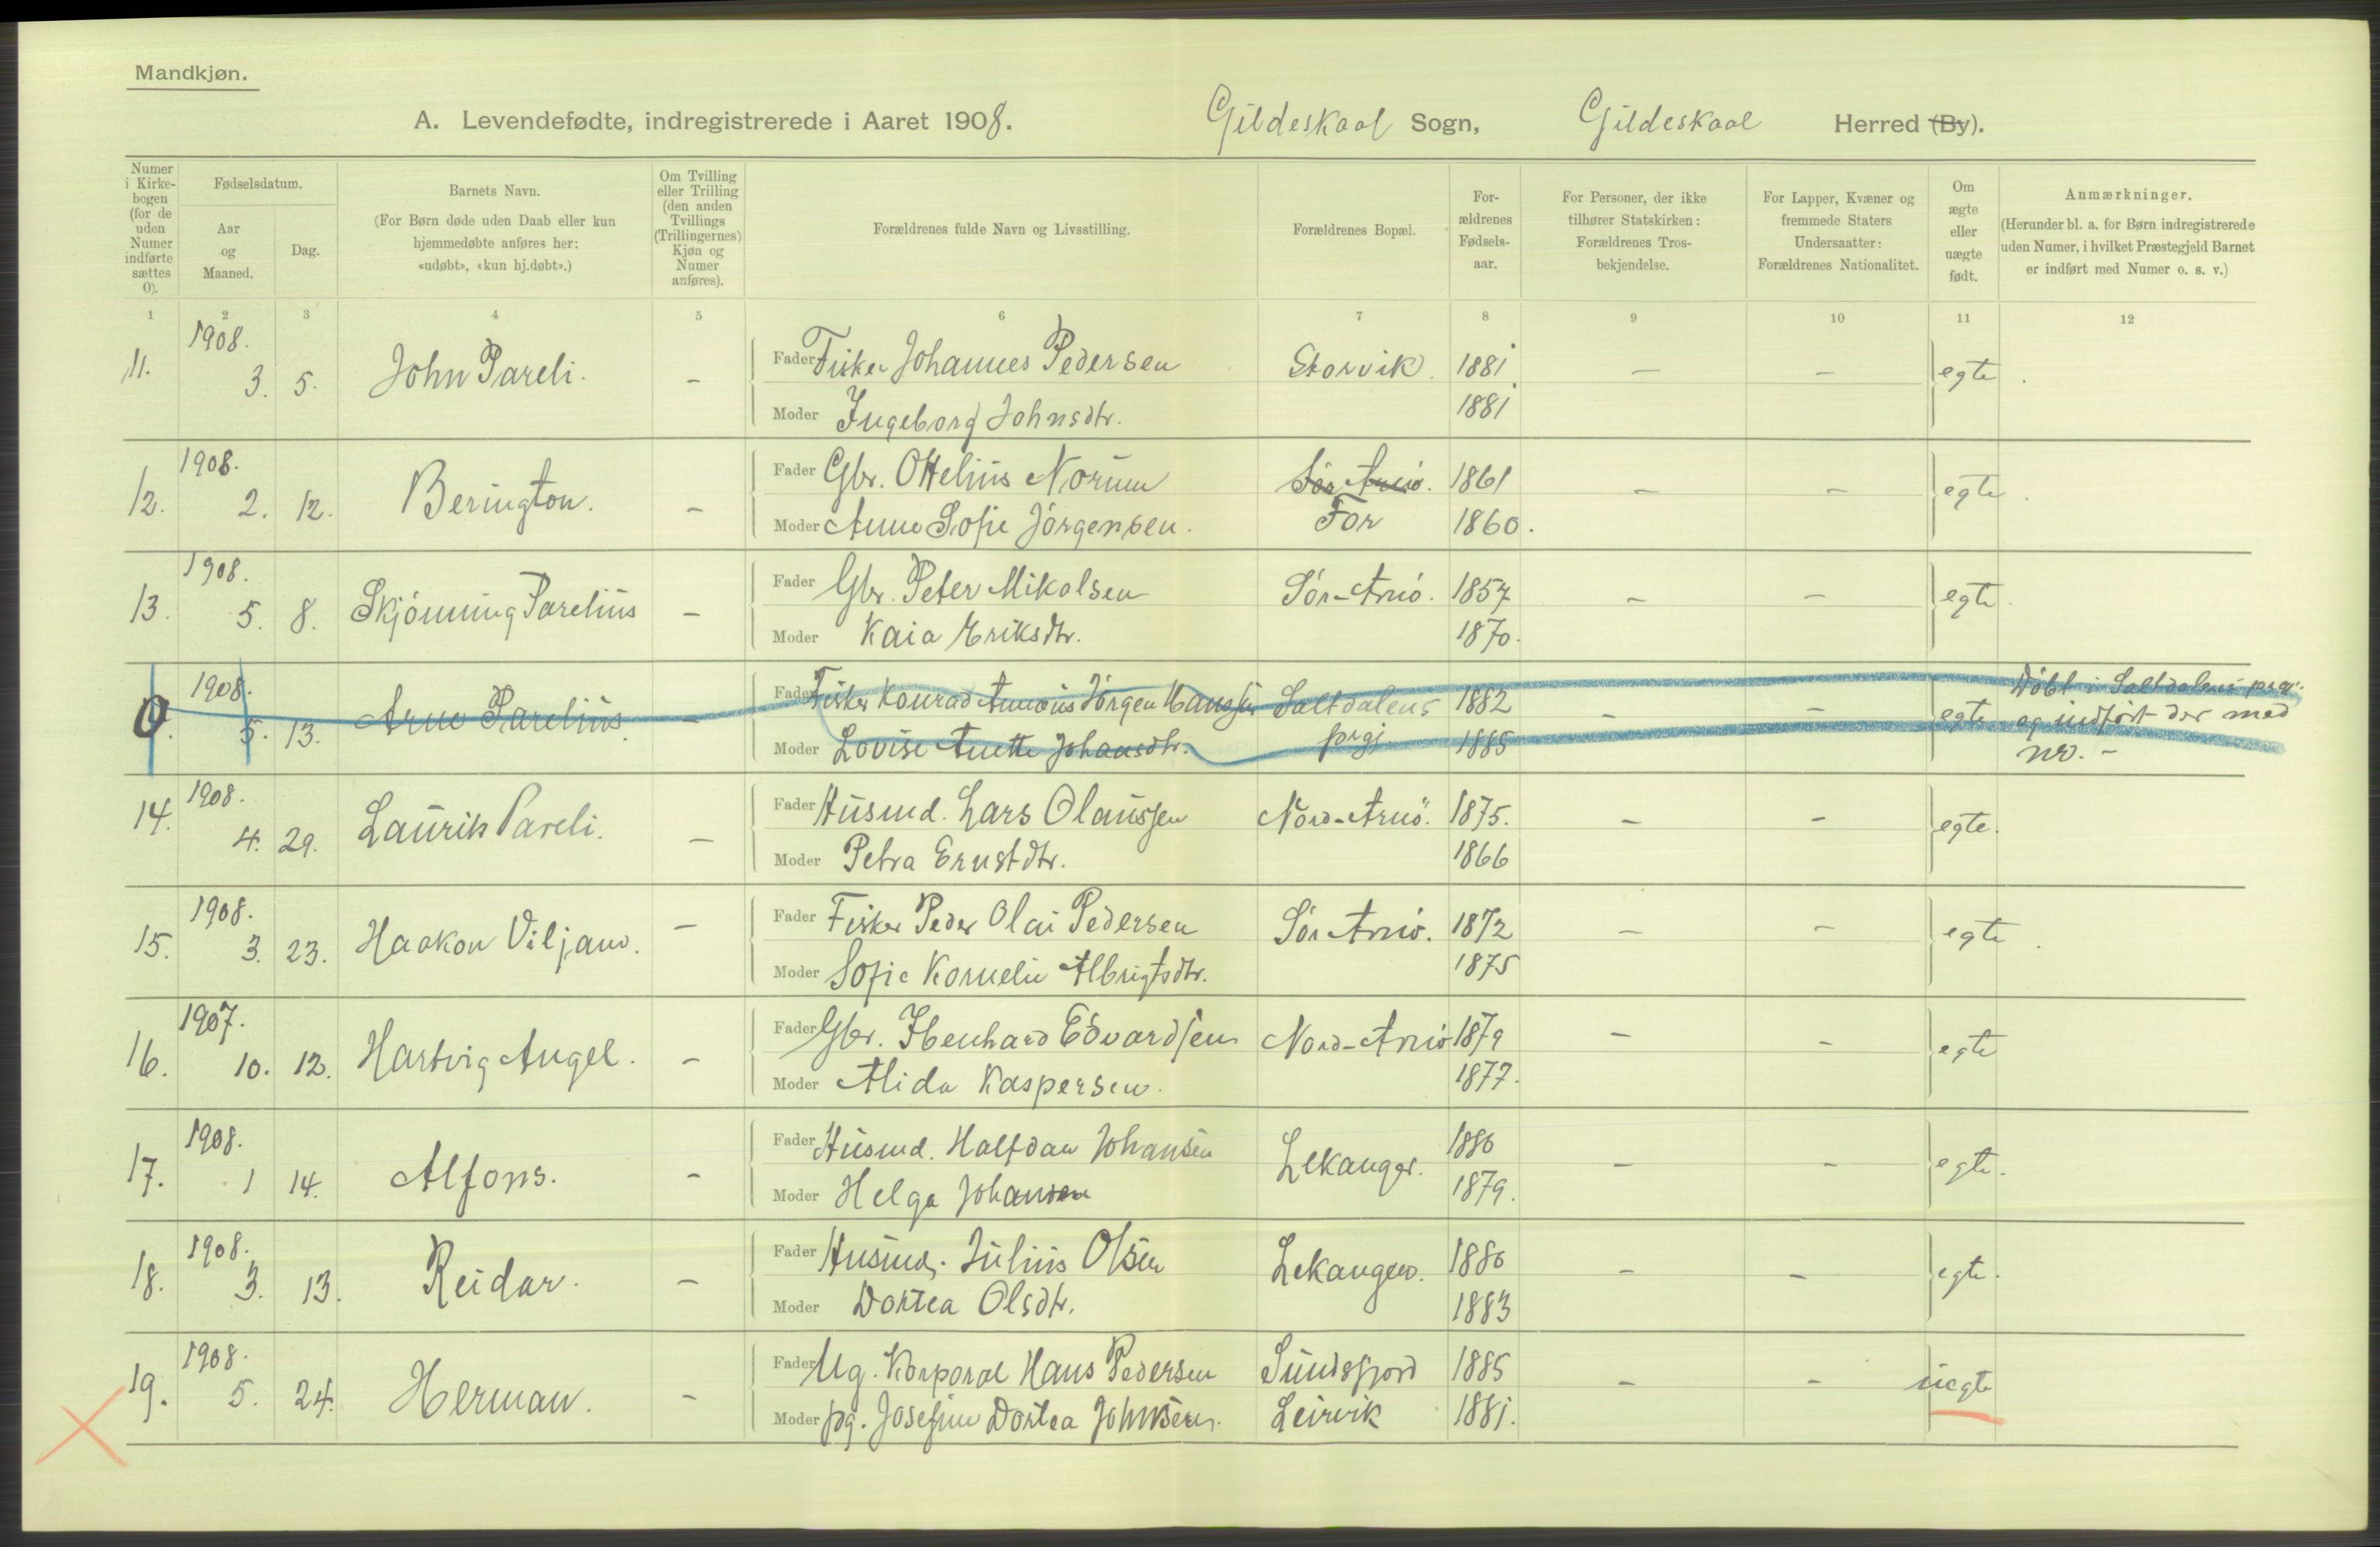 Mandkjøn.
A. Levendefødte, indregistrerede i Aaret 1908. Gildeskaal Sogn, Gildeskaal Herred (By).
Numer i Kirkebogen (for de uden Numer indførte sættes 0).
Fødselsdatum.
Aar og Maaned.
Dag.
Barnets Navn.
(For Børn døde uden Daab eller kun hjemmedøbte anføres her: «udøbt», «kun hj.døbt».)
Om Tvilling eller Trilling (den anden Tvillings (Trillingernes) Kjøn og Numer anføres).
Forældrenes fulde Navn og Livsstilling.
Forældrenes Bopæl.
Forældrenes Fødselsaar.
For Personer, der ikke tilhører Statskirken: Forældrenes Trosbekjendelse.
For Lapper, Kvæner og fremmede Staters Undersaatter: Forældrenes Nationalitet.
Om ægte eller uægte født.
Anmærkninger.
(Herunder bl. a. for Børn indregistrerede uden Numer, i hvilket Præstegjeld Barnet er indført med Numer o. s. v.)
1 2 3 4 5 6 7 8 9 10 11 12
11. 1908. 3. 5. John Pareli. - Fader Fisker Johannes Pedersen Storvik. 1881 - - egte.
Moder Ingeborg Johnsdtr. 1881
12. 1908. 2. 12. Berington. - Fader Gbr. Ottelius Norum Sör Arnö. 1861 - - egte.
Moder Anne Sofie Jörgensen. For 1860.
13. 1908. 5. 8. Skjönning Parelius - Fader Gbr. Peter Mikalsen Sör-Arnö. 1857 - - egte.
Moder Kaia Eriksdtr. 1870.
0. 1908. 5. 13. Arne Parelius. - Fader Fisker Konrad Antonius Jörgen Hanssen Saltdalens 1882 - - egte Döbt i Saltdalens prgj.
Moder Lovise Anette Johansdtr. prgj. 1885 og indfört der med
nr. -
14. 1908. 4. 29. Laurits Pareli. - Fader Husmd. Lars Olaussen Nord-Arnö. 1875. - - egte.
Moder Petra Ernstdtr. 1866
15. 1908. 3. 23. Haakon Viljam. - Fader Fisker Peder Olai Pedersen Sör Arnö. 1872 - - egte.
Moder Sofie Kornelie Albrigtsdtr. 1875
16. 1907. 10. 12. Hartvig Angel. - Fader Gbr. Ibenhard Edvardsen Nord-Arnö 1879 - - egte
Moder Alida Kaspersen. 1877.
17. 1908. 1 14. Alfons. - Fader Husmd. Halfdan Johansen Lekanger. 1880 - - egte.
Moder Helga Johansen 1879.
18. 1908. 3. 13. Reidar. - Fader Husmd. Julius Olsen Lekanger. 1880 - - egte.
Moder Dortea Olsdtr. 1883
19. 1908. 5. 24. Herman. - Fader Ug. Korporal Hans Pedersen Sundsfjord 1885 - - uegte
Moder pg. Josefine Dortea Johnsen. Leirvik 1881.